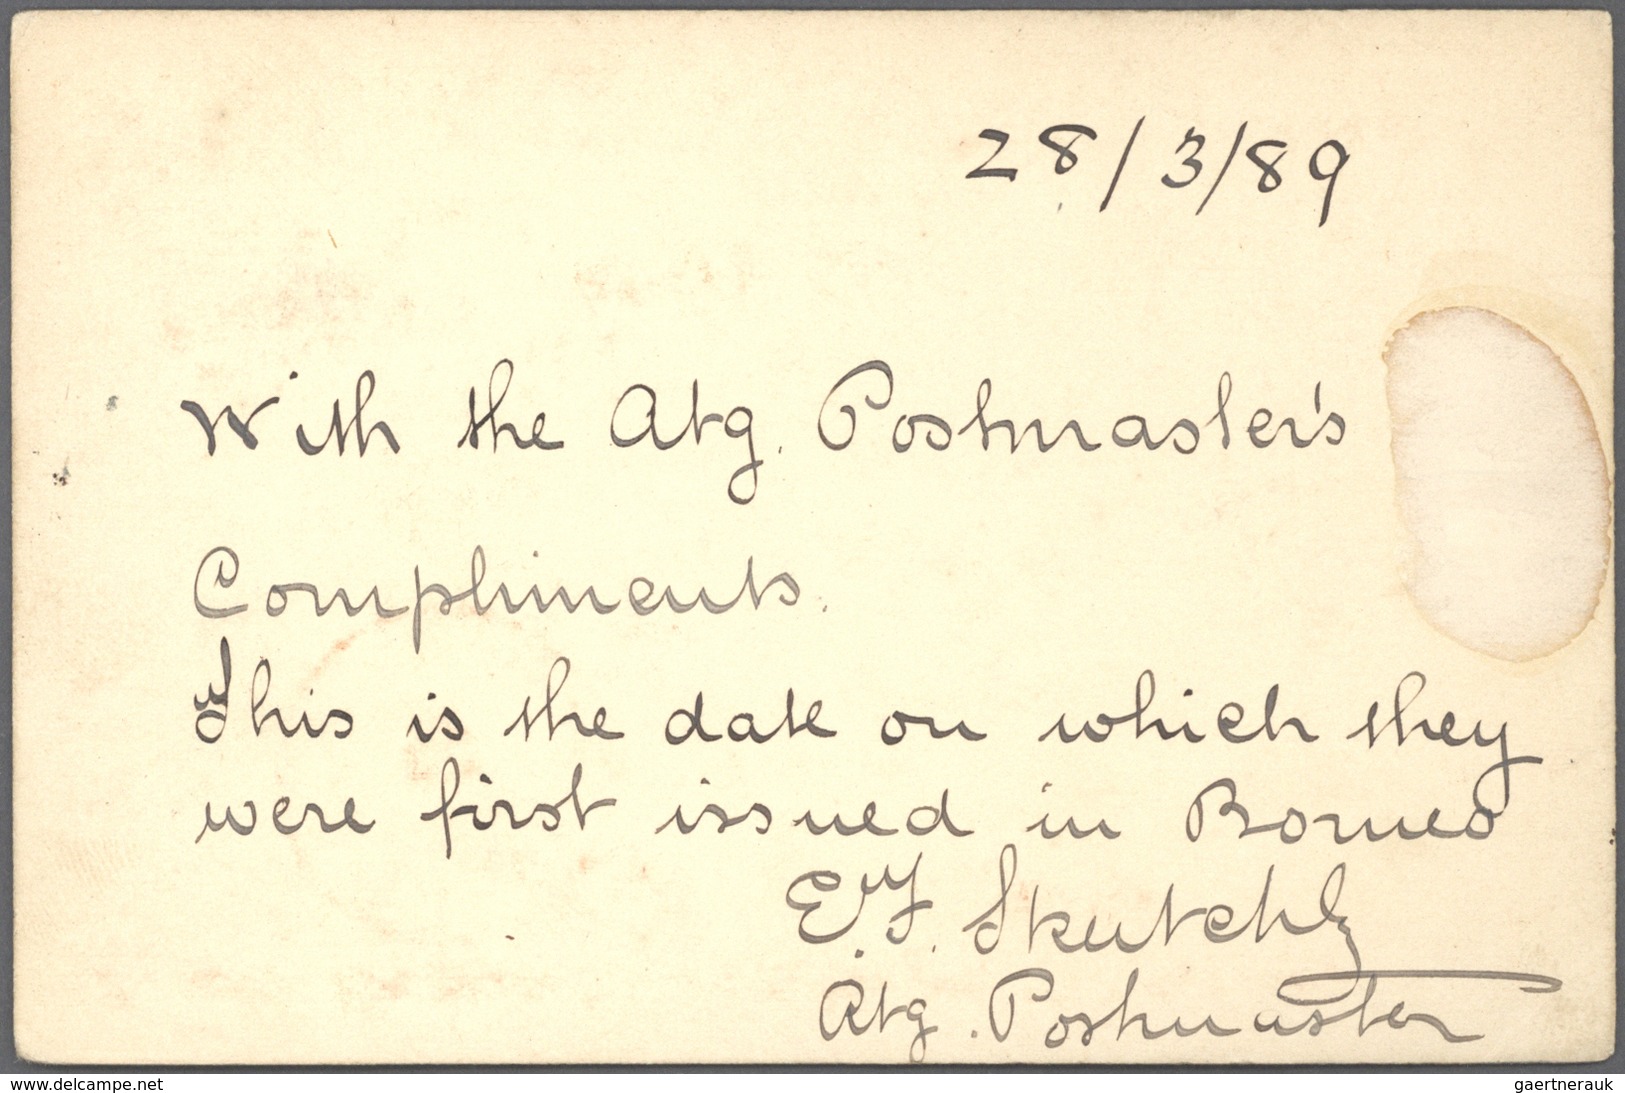 28/3/89
With the Atg. Postmaster's
Compliments.
This is the date on which they
were first issued in Borneo
E. T. Skutchly
Atg. Postmaster
www.delcampe.net
gaertnerauk